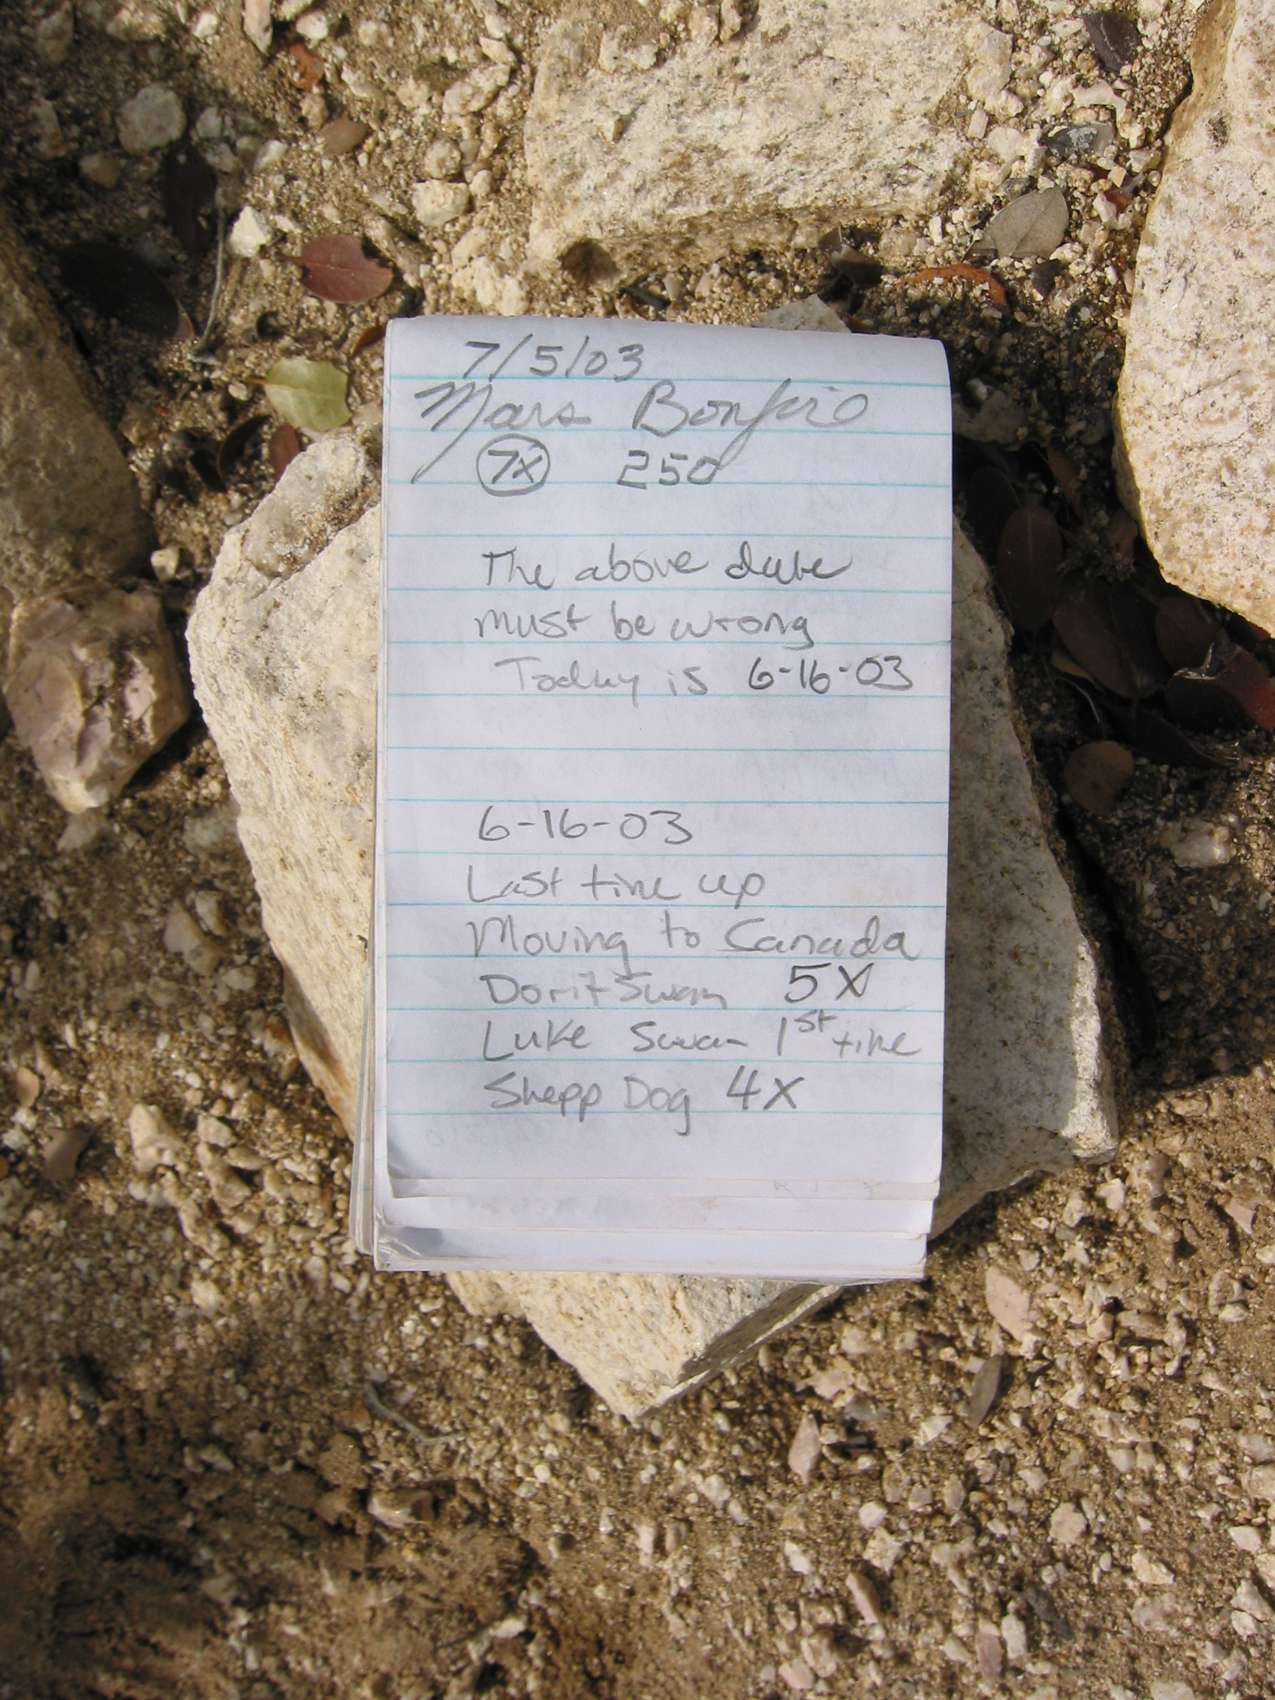 7/5/03
Mars Bonfire
7X 250
The above date
must be wrong
Today is 6-16-03
6-16-03
Last time up
Moving to Canada
Dorit Swan 5X
Luke Swan 1st time
Shepp Dog 4X